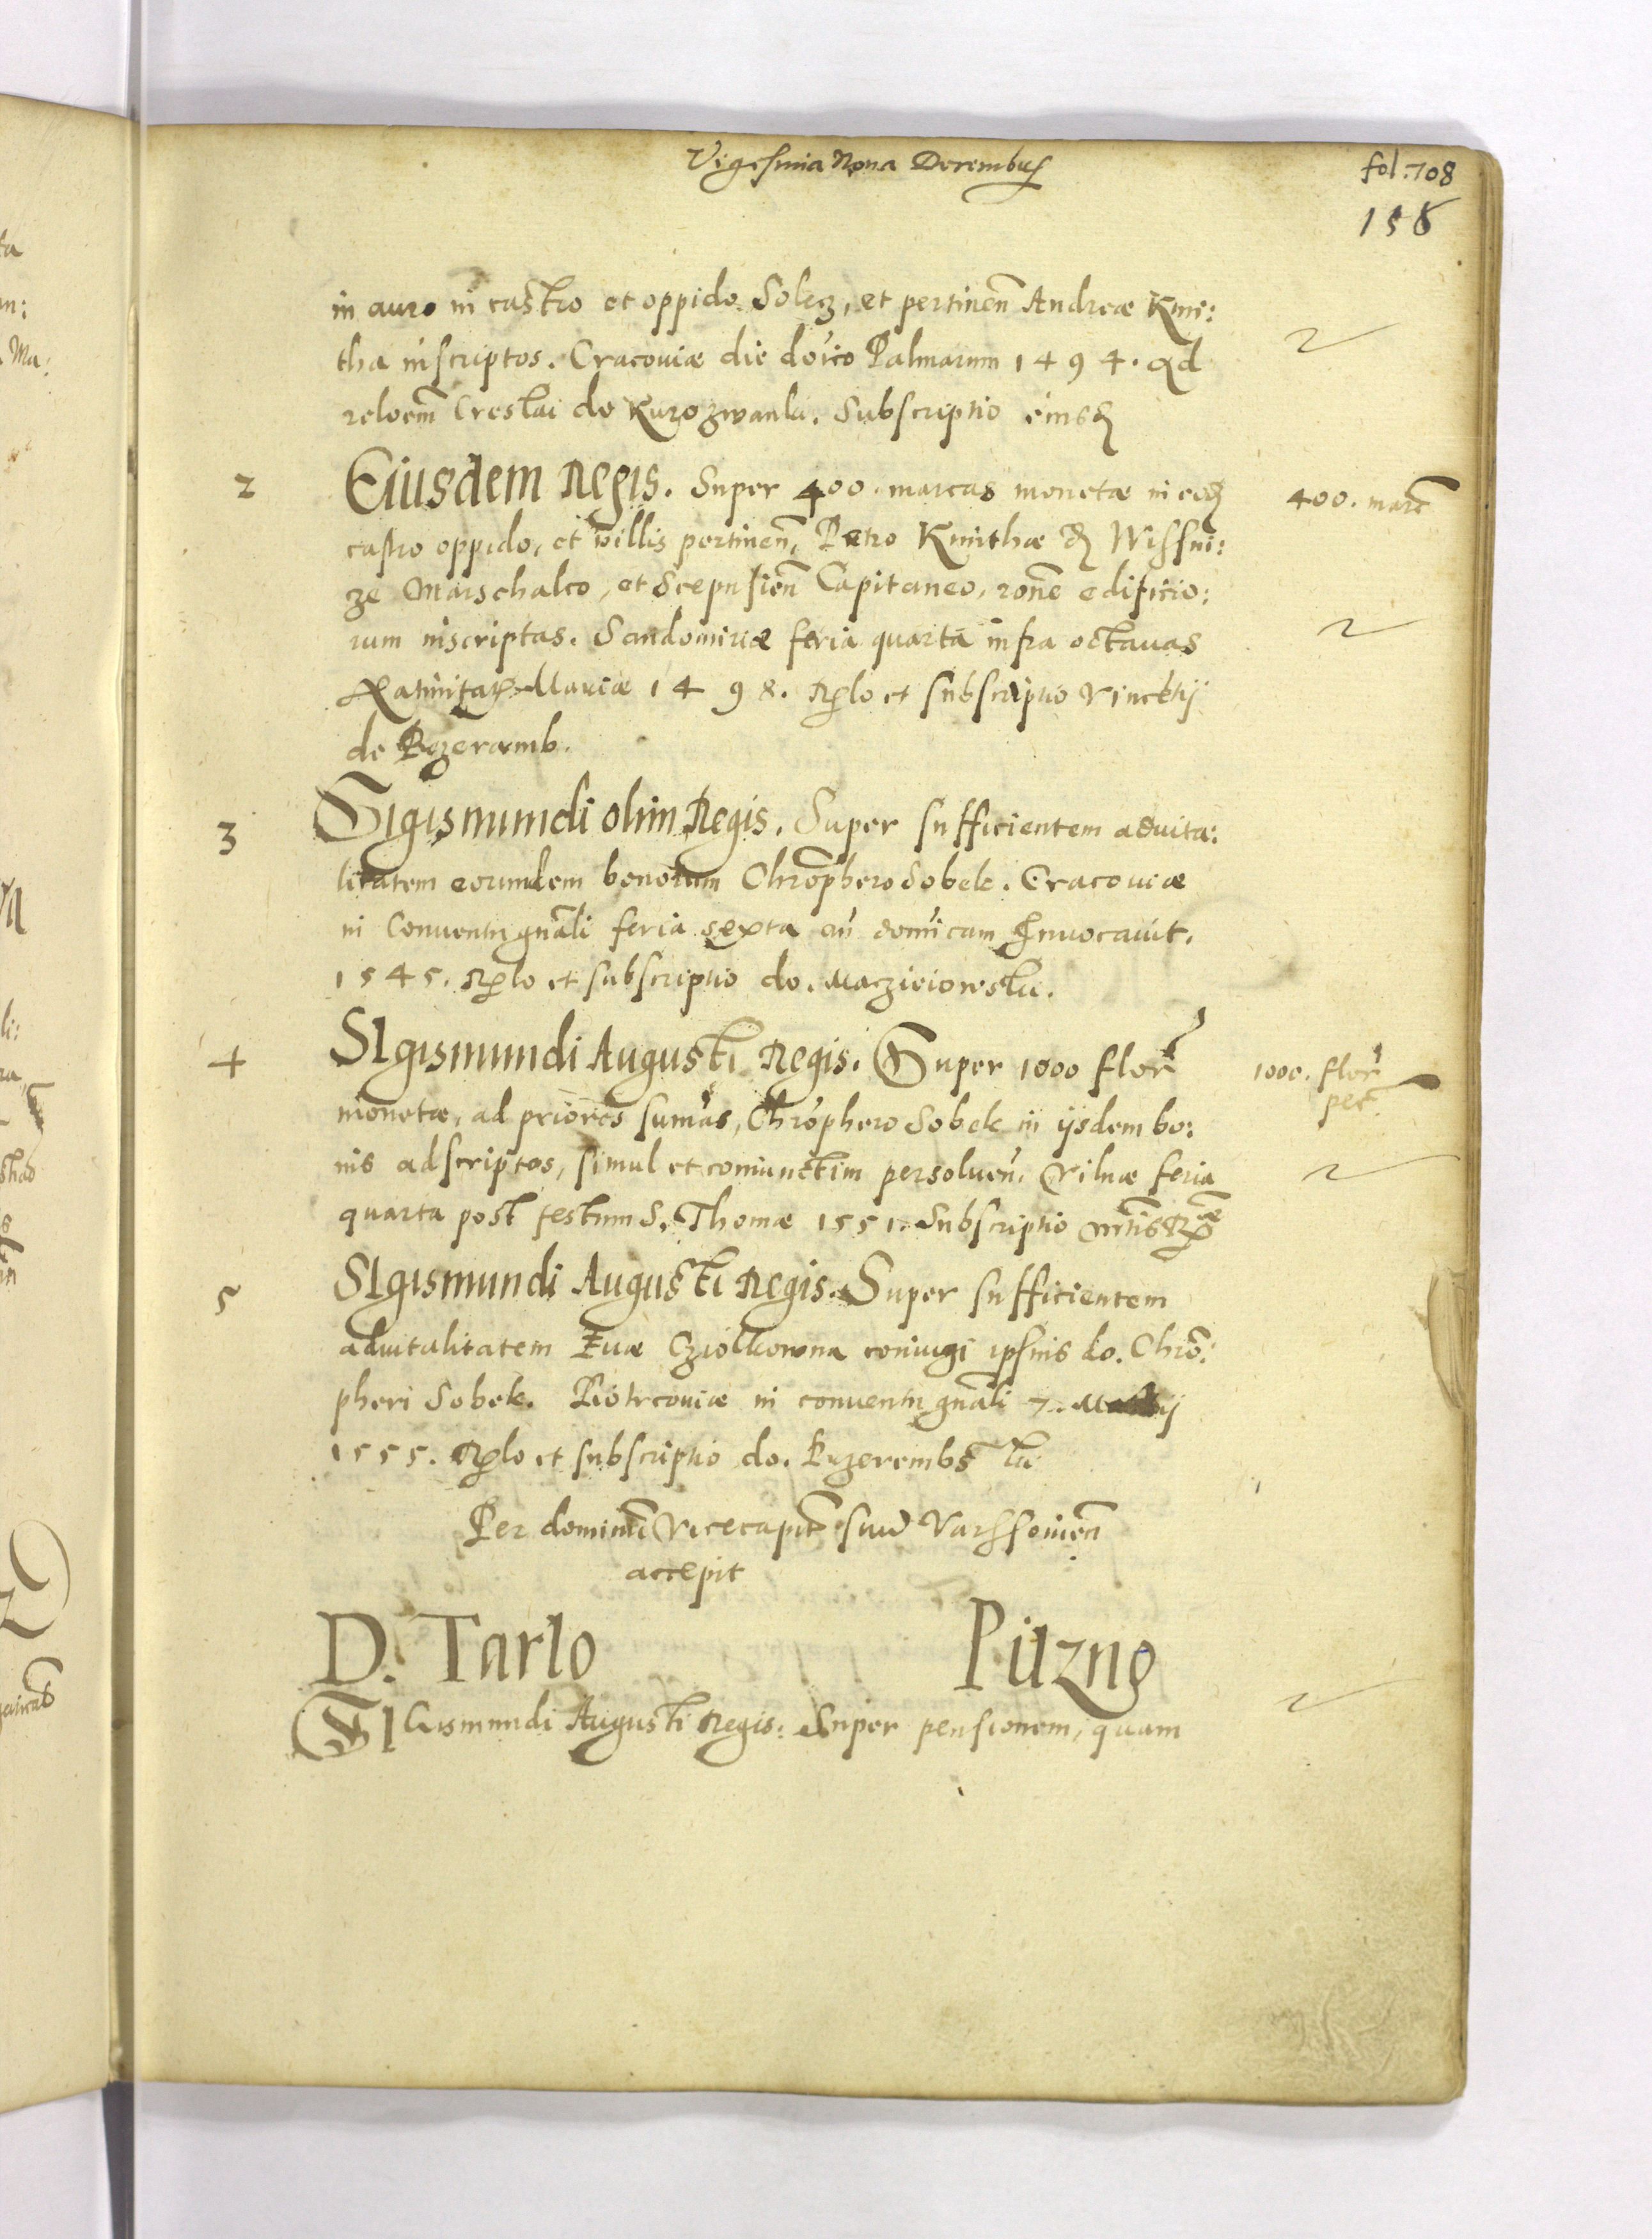 Vigesima Nona Decembris
fol: 708
158
in auro in castro et oppido Solecz, et pertinen Andreæ Kmi:
tha inscriptos. Cracoviæ die do'ico Palmarum 1494. Ad
reloem Creslai de Kurozwanki. Subscriptio eiusd
2 Eiusdem Regis. Super 400. marcas monetæ in eod 400. marc
castro oppido, et villis pertinen, Petro Kmithæ d Wissni:
ze Marschalco, et Scepusien Capitaneo, rone edificio:
rum inscriptas. Sandomiriæ feria quarta infra octauas
Natiuitat Mariæ 1498. Rlo et subscriptio Vincktij
de Przeramb.
3 Sigismundi olim Regis. Super sufficientem aduita:
litatem eorundem bonorum Chrophero Sobek. Cracouiæ
in Conuentu gnali feria sexta an domicam Inuocauit.
1545. Rlo et subscriptio do. Maczieiowsky.
4 SIgismundi Augusti Regis. Super 1000 flor 1000. flor
pec
monetæ, ad priores sumas, Chrophero Sobek in ijsdem bo:
nis adscriptos, simul et coniunctim persoluen. Vilnæ feria
quarta post festum S. Thomæ 1551. Subscriptio
5 SIgismundi Augusti Regis. Super sufficientem
aduitalitatem Euæ Cziolkowna coniugi ipsius do. Chro:
pheri Sobek. Piotrcouiæ in conuentu gnali 7. Maij
1555. Rlo et subscriptio do. Przerembs ki
Per dominu Vicecapit suu Varssouien
accepit
D. Tarlo Pilzno
SIGismundi Augusti Regis. Super pensionem, quam